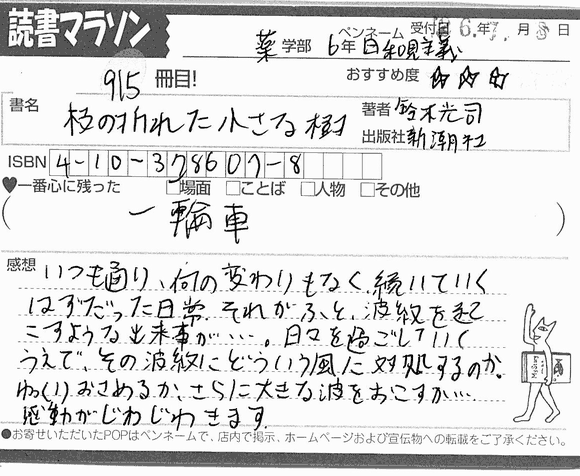 読書マラソン
受付日 '16.年7.月8日
薬学部 6年 ペンネーム 日和見主義
915冊目!
おすすめ度 ☆☆☆
書名 枝の折れた小さな樹
著者 鈴木光司
出版社 新潮社
ISBN 4-10-378607-8
♥一番心に残った □場面 □ことば □人物 □その他
( 一輪車 )
感想 いつも通り、何の変わりもなく、続いていく
はずだった日常。それがふと、波紋を起
こすような出来事が…。日々を過ごしていく
うえで、その波紋にどういう風に対処するのか。
ゆっくりおさめるか、さらに大きな波をおこすか…
感動がじわじわきます。
●お寄せいただいたPOPはペンネームで、店内で掲示、ホームページおよび宣伝物への転載をご了承ください。